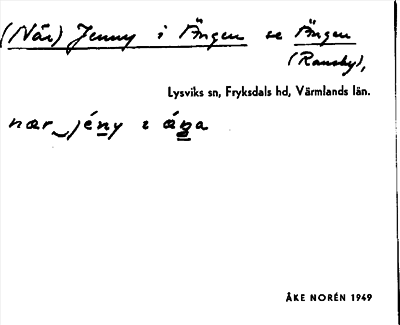 (När) Jenny i Ängen se Ängen
(Ransby),
Lysviks sn, Fryksdals hd, Värmlands län.
nær jény ɩ áŋa
ÅKE NORÉN 1949